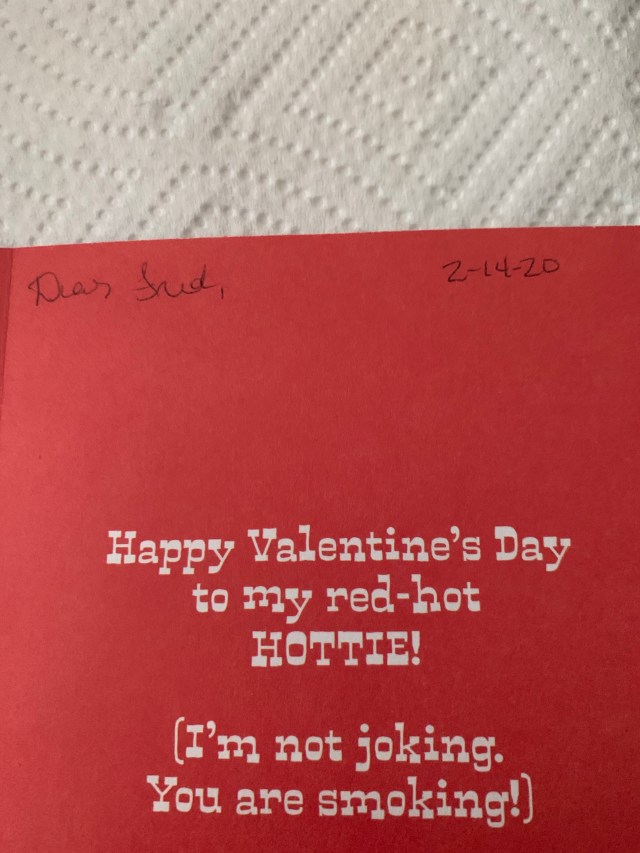 Dear Fred, 2-14-20
Happy Valentine's Day
to my red-hot
HOTTIE!
(I'm not joking.
You are smoking!)